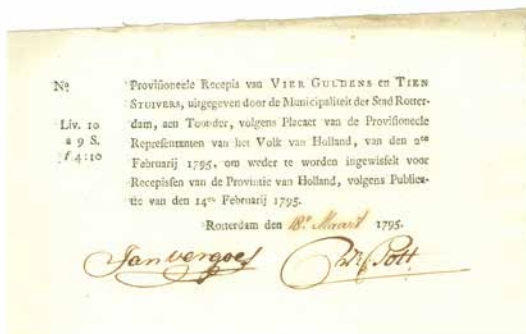 No
Provisioneele Recepis van VIER GULDENS en TIEN
STUIVERS, uitgegeven door de Municipaliteit der Stad Rotter-
dam, aen Toonder, volgens Placaet van de Provisioneele
Representanten van het Volk van Holland, van den 2de
Februarij 1795, om weder te worden ingewisselt voor
Recepissen van de Provintie van Holland, volgens Publica-
tie van den 14en Februarij 1795.
Liv. 10
a 9 S.
f 4:10
Rotterdam den 18e Maart 1795.
Jan vergoes
Pott